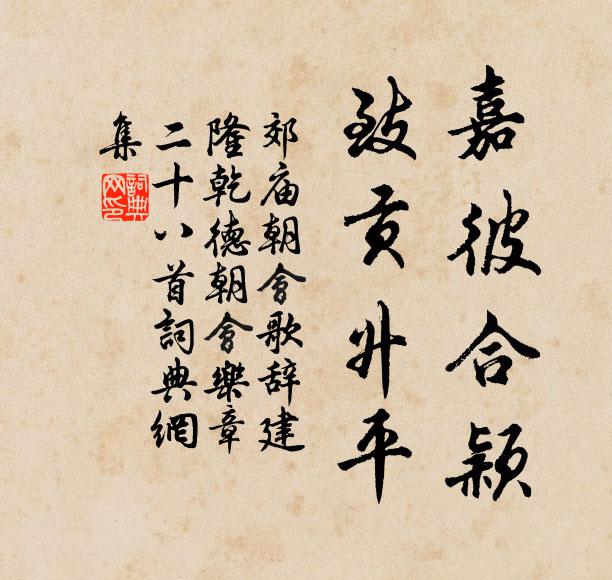 嘉彼合颖
致贡升平
郊庙朝会歌辞建
隆乾德朝会樂章
二十八首詞典網
集
詞典
网印